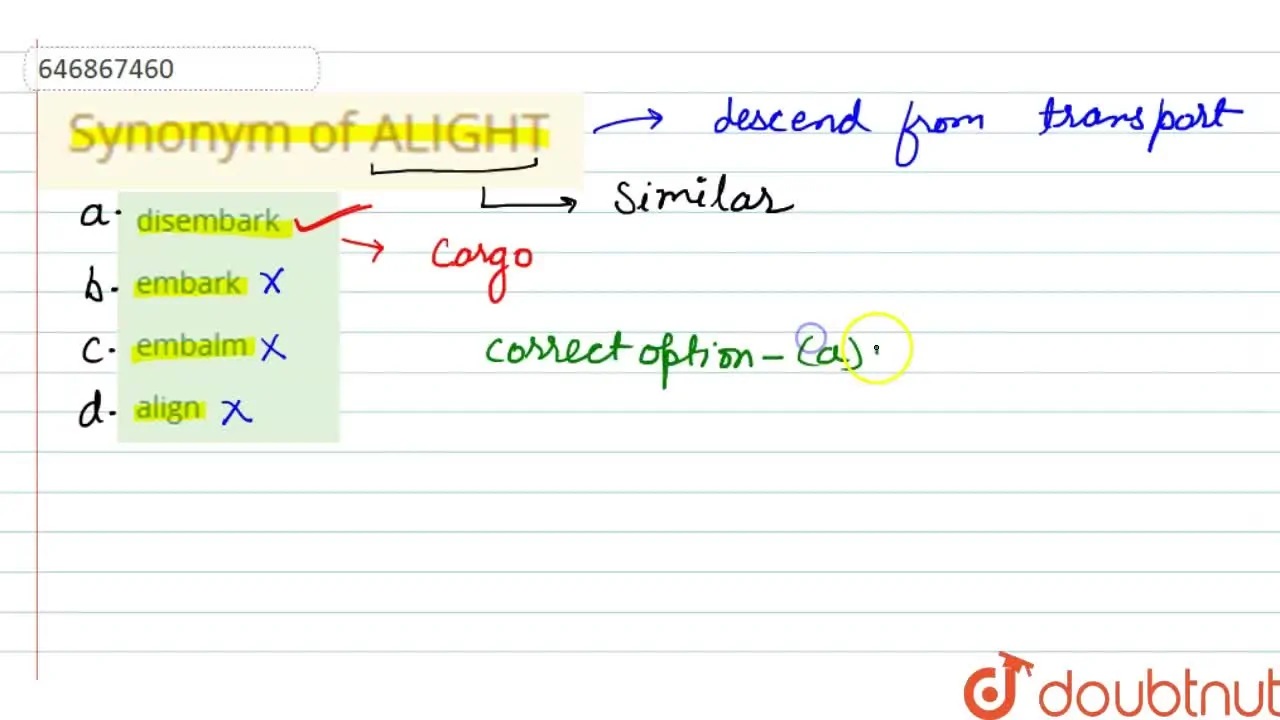 646867460
Synonym of ALIGHT → descend from transport
→ Similar
a. disembark ✓
→ Cargo
b. embark x
c. embalm x
correct option - (a).
d. align x
doubtnut